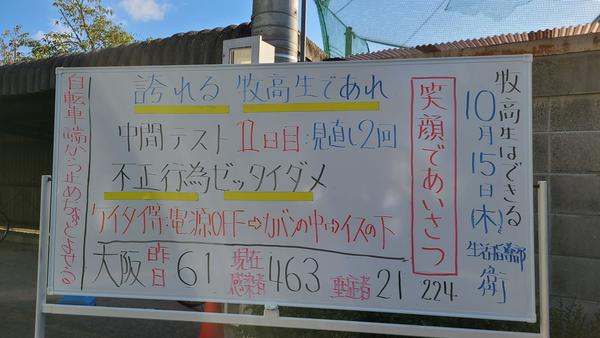 牧高生はできる
10月15日(木)
生活指導部
衛
笑顔であいさつ
224
誇れる 牧高生であれ
中間テスト 1日目:見直し2回
不正行為ゼッタイダメ
ケイタイ等:電源OFF⇨カバンの中⇨イスの下
大阪 昨日 61 現在感染者 463 重症者 21
自転車 端から止めちゃおとよせる